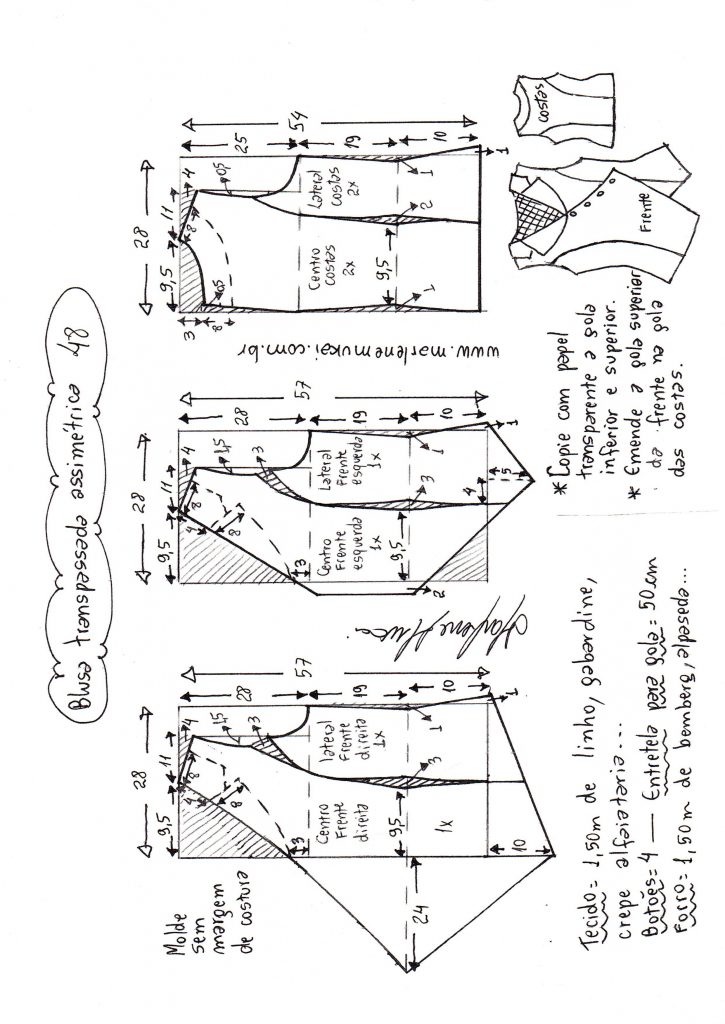 Blusa transpassada assimétrica 48
Molde
sem
margem
de costura
28
9,5
11
4
4
8
8
1,5
3
3
28
57
19
10
1
1
3
9,5
10
24
Centro
Frente
direita
1x
lateral
Frente
direita
1x
28
9,5
11
4
4
8
8
1,5
3
3
28
57
19
10
1
1
3
9,5
2
4
15
Centro
Frente
esquerda
1x
Lateral
Frente
esquerda
1x
www.marlenemukai.com.br
28
9,5
11
4
8
3
8
0,5
0,5
25
54
19
10
1
1
2
9,5
1
Centro
costas
2x
Lateral
costas
2x
Tecido = 1,50m de linho, gabardine,
crepe alfaiataria...
Botões = 4 — Entretela para gola = 50cm
Forro = 1,50m de bemberg, alpaseda...
* Copie com papel
transparente a gola
inferior e superior.
* Emende a gola superior
da frente na gola
das costas.
Frente
costas